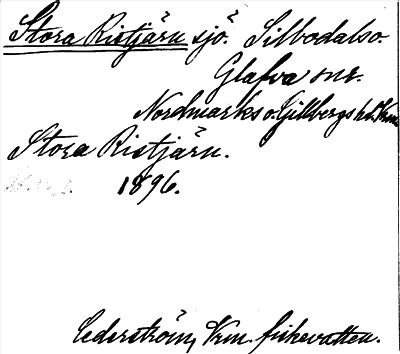 Stora Ristjärn sjö. Silbodal so.
Glafva snr.
Nordmarks o. Gillbergs hd. Vrm
Stora Ristjärn.
1896.
Cederström, Vrm. fiskevatten.